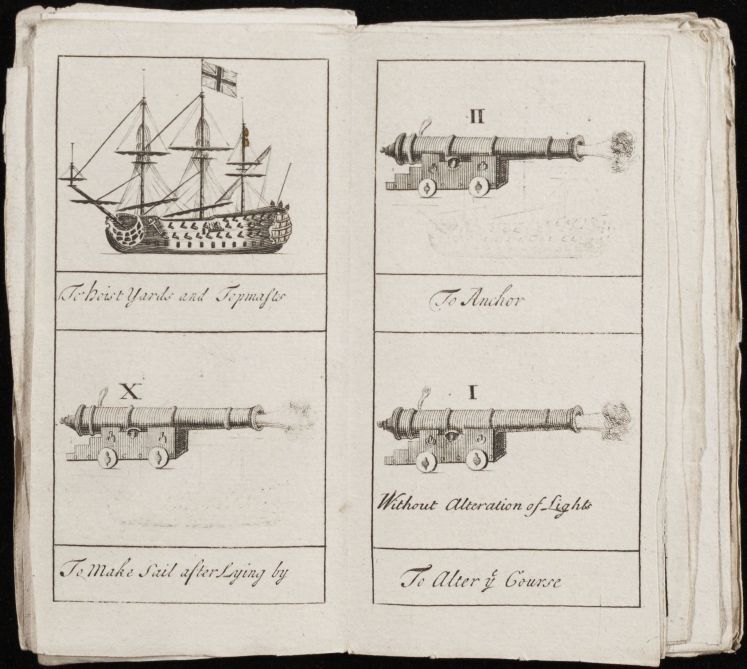 To hoist Yards and Topmasts
X
To Make Sail after Lying by
II
To Anchor
I
Without Alteration of Lights
To Alter yͤ Course